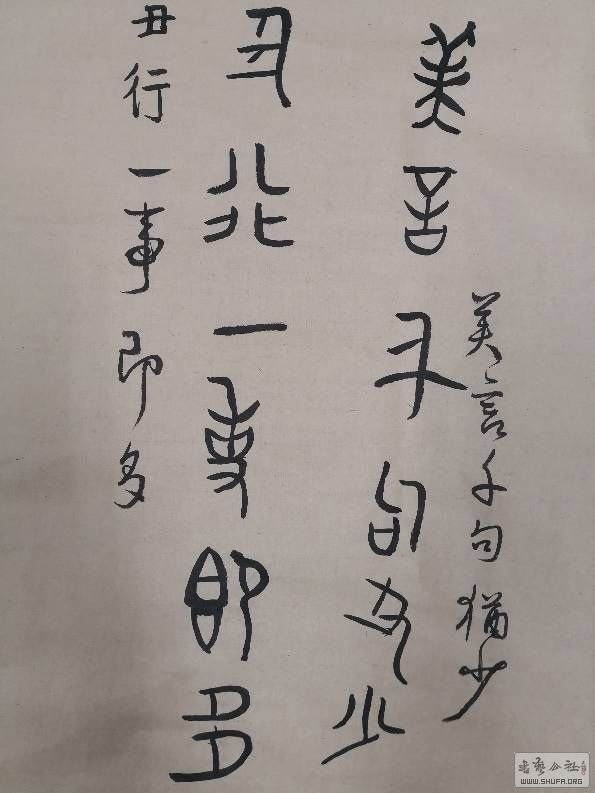 美言千句猶少
美言千句少
丑行一事即多
丑行一事即多
书艺公社
WWW.SHUFA.ORG